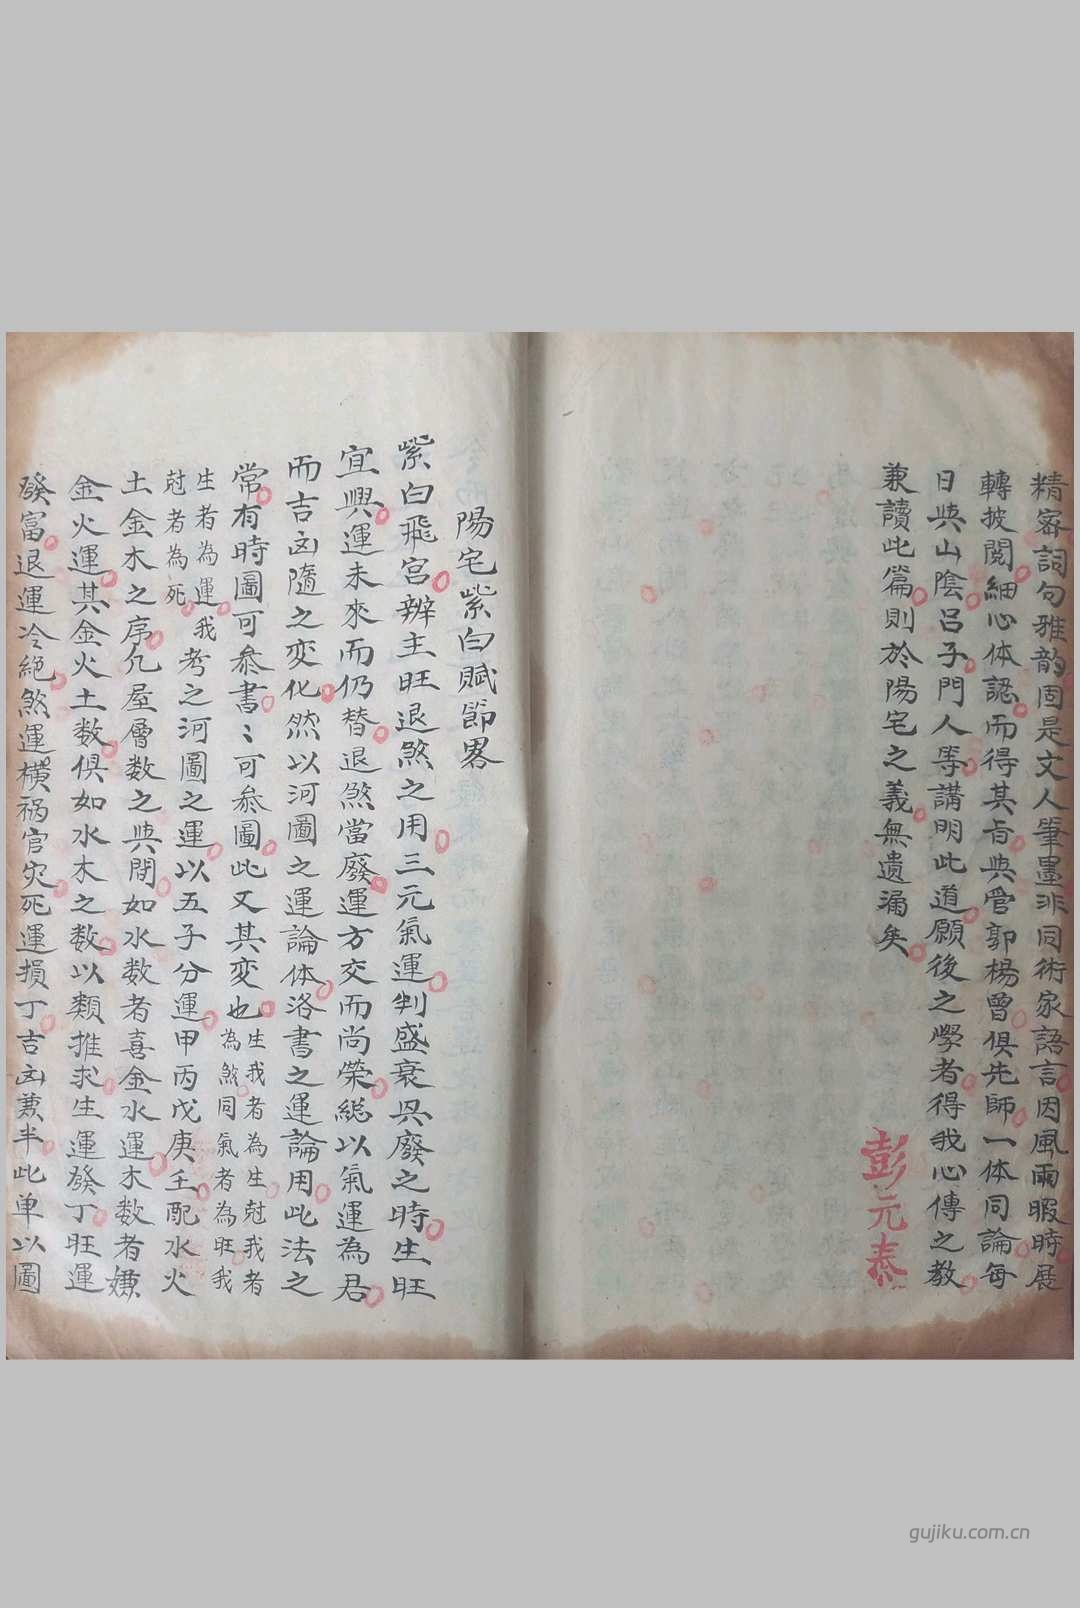 精密詞句雅韵固是文人筆墨非同術家語言因風雨暇時展
轉披閱細心体認而得其旨與管郭楊曾俱先師一体同論每
日與山陰呂子門人等講明此道願後之學者得我心傳之教
兼讀此篇則於陽宅之義無遺漏矣
彭元泰
陽宅紫白賦節畧
紫白飛宮辨主旺退煞之用三元氣運判盛衰具廢之時生旺
宜興運未來而仍替退煞當廢運方交而尚榮総以氣運為君
而吉凶隨之变化然以河圖之運論体洛書之運論用此法之
常有時圖可叅書〻可叅圖此又其变也生我者為生尅我者
為煞同氣者為旺我
生者為運我
尅者為死考之河圖之運以五子分運甲丙戊庚壬配水火
土金木之序凢屋層數之與間如水数者喜金水運木数者嫌
金火運其金火土数俱如水木之数以類推求生運發丁旺運
發富退運冷絕煞運橫禍官灾死運損丁吉凶兼半此单以圖
gujiku.com.cn